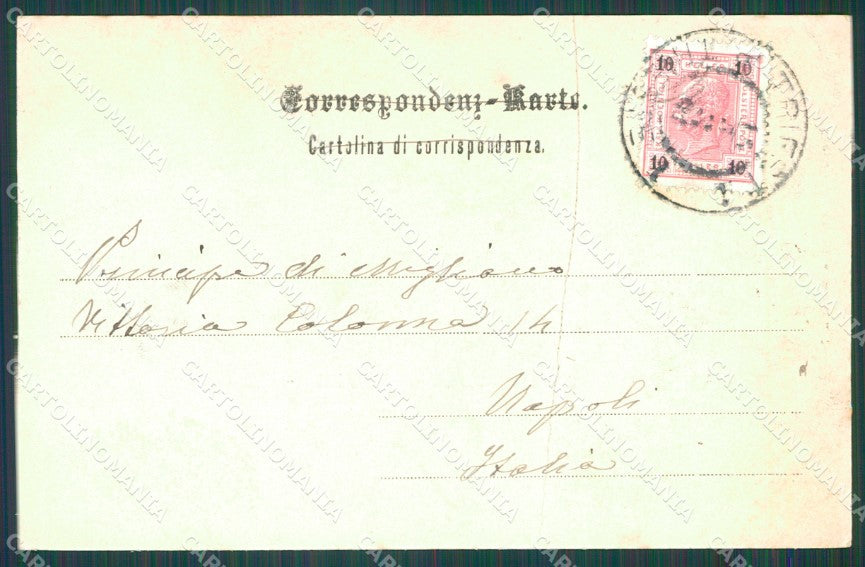 Correspondenz-Karte.
Cartolina di corrispondenza.
10 10
10 10
TRIEST
Principe di Migliano
Vittoria Colonna 14
Napoli
Italia
CARTOLINOMANIA